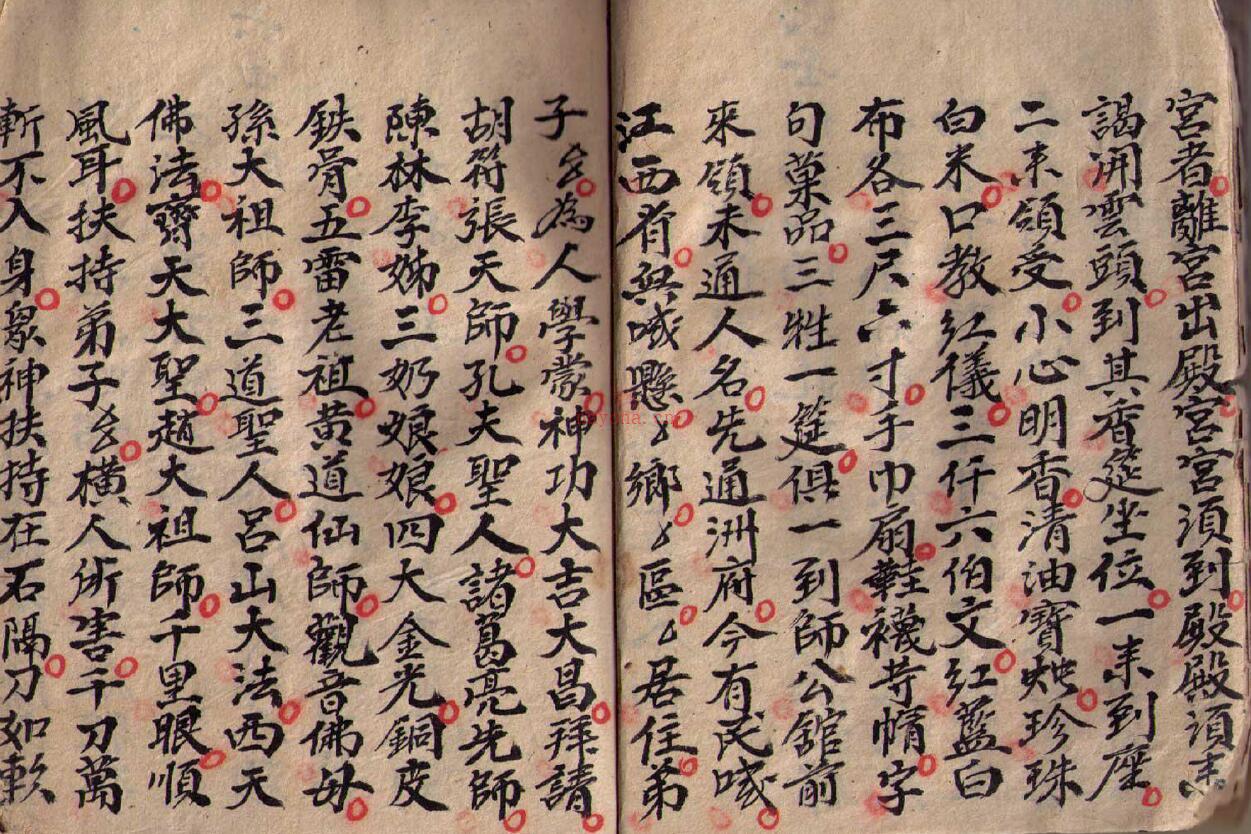 宮者離宮出殿宮宮須到殿殿須來
謁開雲頭到其香筵坐位一來到座
二來領受小心明香清油寶燭珍珠
白米口教紅儀三仟六伯文紅藍白
布各三尺六寸手巾扇鞋襪等帽字
句菓品三牲一筵俱一到師公館前
來領未通人名先通洲府今有民
江西省縣鄉區居住弟
子為人學蒙神功大吉大昌拜請
胡符張天師孔夫聖人諸葛亮先師
陳林李姊三奶娘娘四大金光銅皮
鉄骨五雷老祖黃道仙師觀音佛母
孫大祖師三道聖人呂山大法西天
佛法齊天大聖趙大祖師千里眼順
風耳扶持弟子橫人所害千刀萬
斬不入身眾神扶持在石隔刀如軟